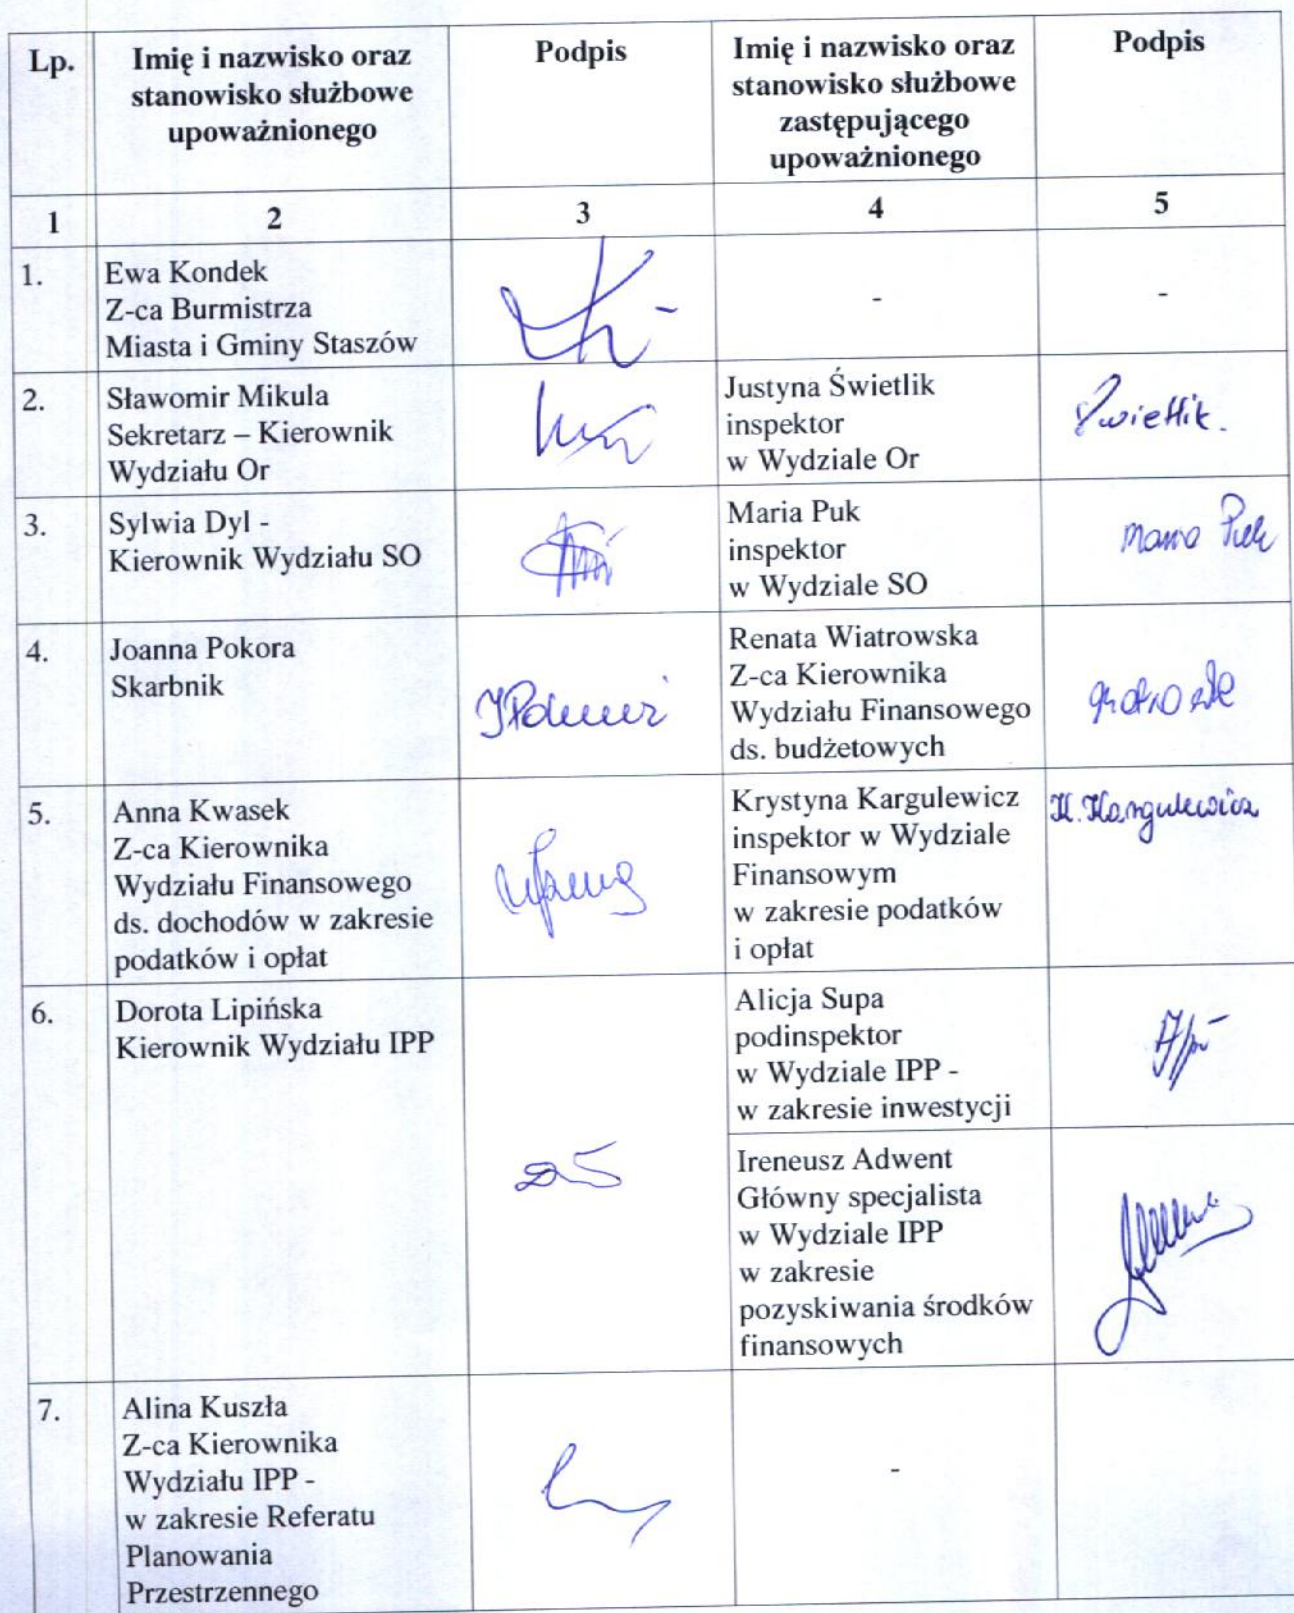 Lp.
Imię i nazwisko oraz
stanowisko służbowe
upoważnionego
Podpis
Imię i nazwisko oraz
stanowisko służbowe
zastępującego
upoważnionego
Podpis
1
2
3
4
5
1.
Ewa Kondek
Z-ca Burmistrza
Miasta i Gminy Staszów
-
-
2.
Sławomir Mikula
Sekretarz – Kierownik
Wydziału Or
Justyna Świetlik
inspektor
w Wydziale Or
Świetlik.
3.
Sylwia Dyl -
Kierownik Wydziału SO
Maria Puk
inspektor
w Wydziale SO
Maria Puk
4.
Joanna Pokora
Skarbnik
Renata Wiatrowska
Z-ca Kierownika
Wydziału Finansowego
ds. budżetowych
5.
Anna Kwasek
Z-ca Kierownika
Wydziału Finansowego
ds. dochodów w zakresie
podatków i opłat
Krystyna Kargulewicz
inspektor w Wydziale
Finansowym
w zakresie podatków
i opłat
K. Kargulewicz
6.
Dorota Lipińska
Kierownik Wydziału IPP
Alicja Supa
podinspektor
w Wydziale IPP -
w zakresie inwestycji
Ireneusz Adwent
Główny specjalista
w Wydziale IPP
w zakresie
pozyskiwania środków
finansowych
7.
Alina Kuszła
Z-ca Kierownika
Wydziału IPP -
w zakresie Referatu
Planowania
Przestrzennego
-